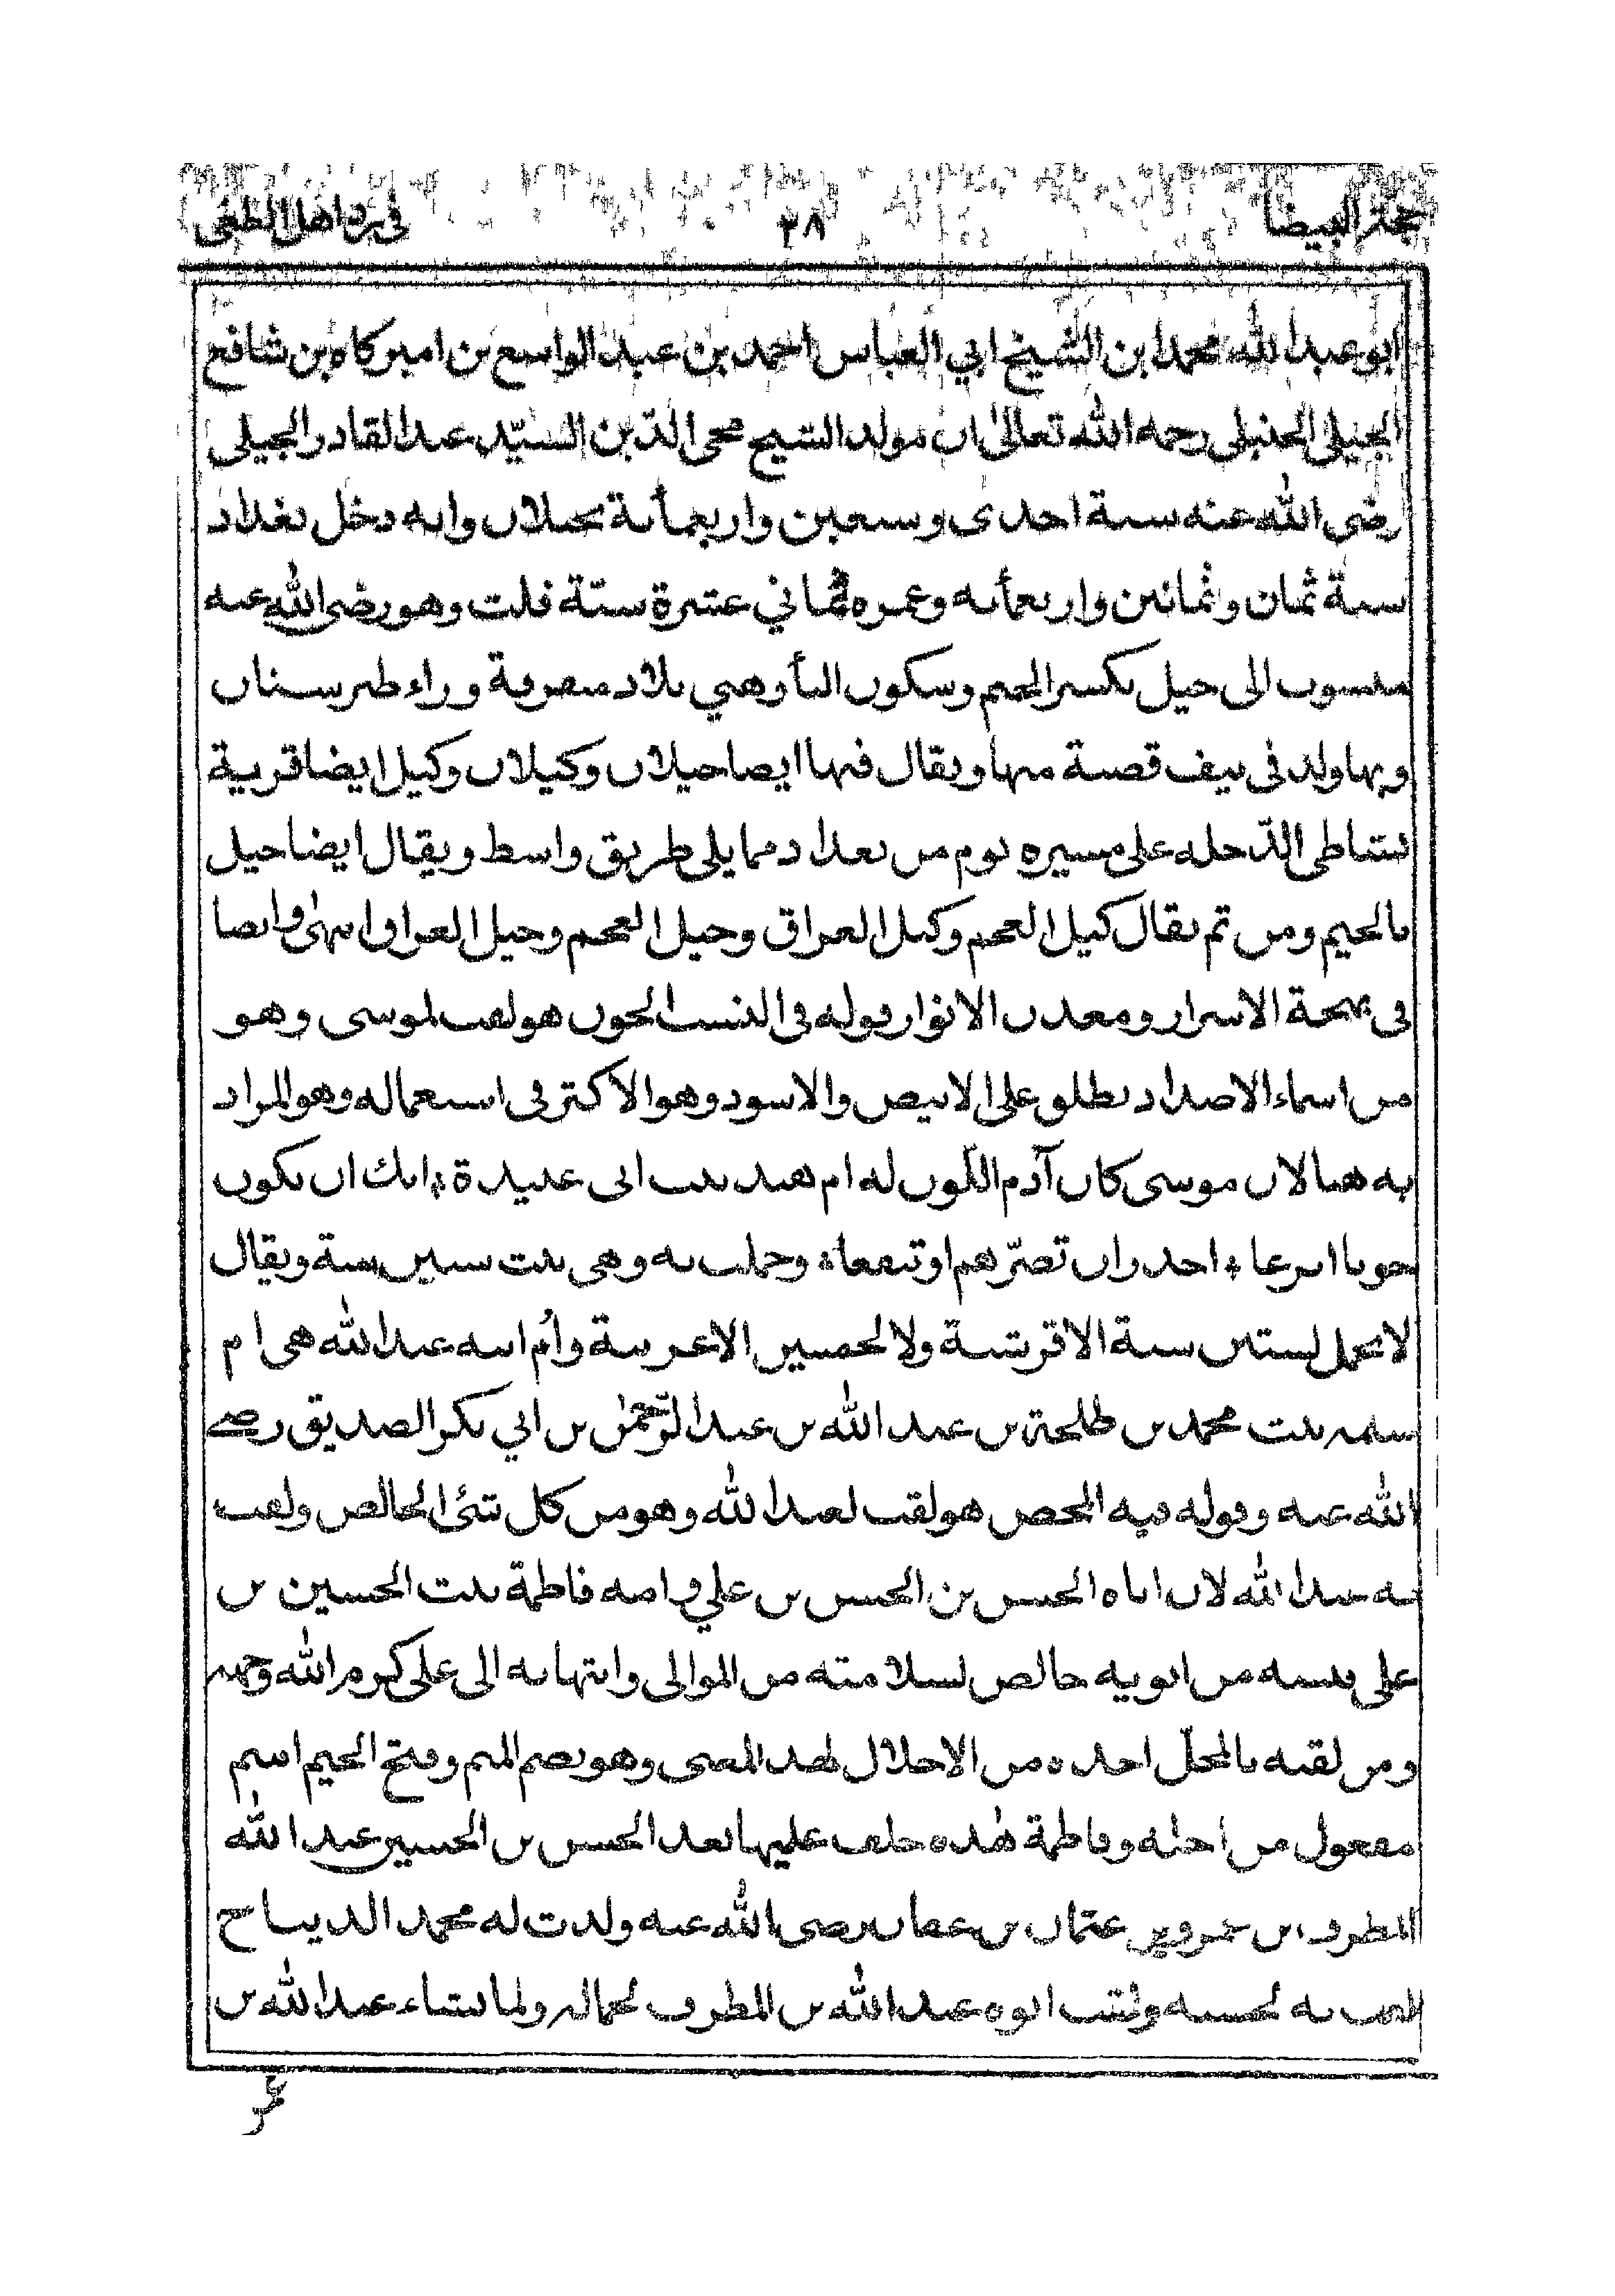 حجة البيضا ٣٨ في رد اهل الطغى
ابو عبد الله محمد ابن الشيخ ابي العباس احمد بن عبد الواسع بن امير كاه بن شافع
الجيلي الحنبلي رحمه الله تعالى ان مولد الشيخ محي الدّين السيّد عبد القادر الجيلي
رضي الله عنه سنة احدى وسبعين واربعمأئة بجيلان وانه دخل بغداد
سنة ثمان وثمانين واربعمأئه وعمره ثماني عشرة سنّة قلت وهو رضى الله عنه
منسوب الى جيل بكسر الجيم وسكون اليأ وهي بلاد متفرقة وراء طبرستان
وبها ولد في نيف قصبة منها ويقال فيها ايضا جيلان وكيلان وكيل ايضا قرية
بشاطى الدّجله على مسيره يوم من بغداد مما يلي طريق واسط ويقال ايضا جيل
بالجيم ومن ثم يقال كيل العجم وكيل العراق وجيل العجم وجيل العراق انتهىٰ وايضا
في بهجة الاسرار ومعدن الانوار قوله في النسب الجون هو لقب لموسى وهو
من اسماء الاضداد يطلق على الابيض والاسود وهو الاكثر في استعماله وهو المراد
به هنا لان موسى كان آدم اللّون له ام هند بنت ابى عبيدة ؛ انك ان يكون
جونا انزعا ؛ اجدر ان تضرّهم او تنفعا؛ وحملت به وهى بنت ستين سنة ويقال
لا تحمل لستين سنة الا قرشية ولا لخمسين الا عربية وأم ابنه عبد الله هى ام
سلمه بنت محمد بن طلحة بن عبد الله بن عبد الرّحمٰن بن ابي بكر الصديق رضے
الله عنه وقوله فيه المحض هو لقب لعبد الله وهو من كل شئ الخالص ولقب
به عبد الله لان اباه الحسن بن الحسن بن علي وامه فاطمة بنت الحسين بن
على فنسبه من ابويه خالص لسلامته من الموالى وانتهائه الى على كرم الله وجهه
ومن لقبه بالمجلّ اخده من الاجلال لهذ المعنى وهو بضم الميم وفتح الجيم اسم
مفعول من اجله وفاطمة هٰذه خلف عليها بعد الحسن بن الحسين عبد الله
المطرف بن عمرو بن عثمان بن عفان رضى الله عنه ولدت له محمد الديباج
لقب به لحسنه ولقب ابوه عبد الله بن المطرف لجماله ولما نشاء عبد الله بن